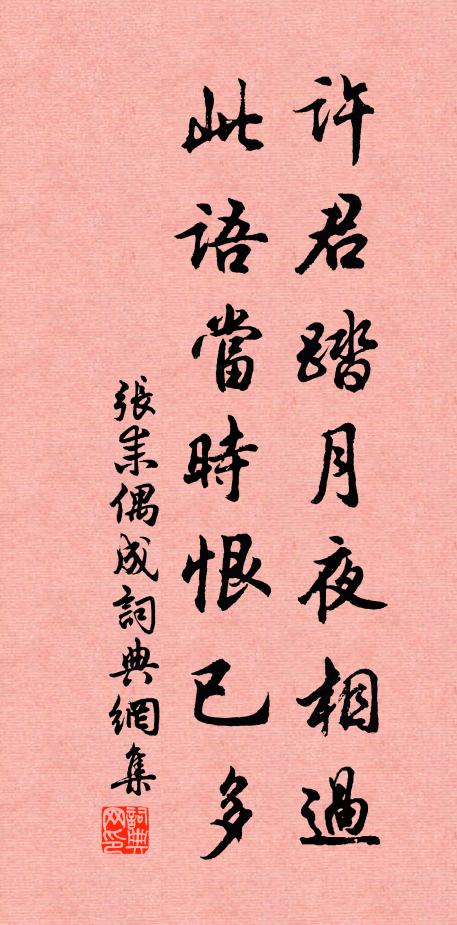 許君踏月夜相過
此語當時恨已多
張耒偶成詞典網集
詞典网印